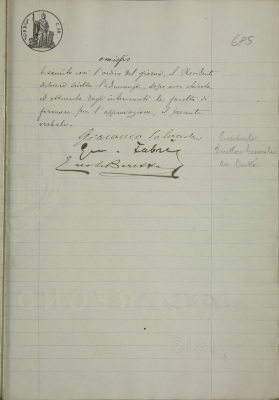 685
omissis
Esaurito con l'ordine del giorno, il Presidente
dichiara sciolta l'adunanza, dopo aver chiesto
ed ottenuta dagli intervenuti la facoltà di
firmare, per l'approvazione, il presente
verbale.
Giacomo
Fabre
Presidente
Direttore Generale